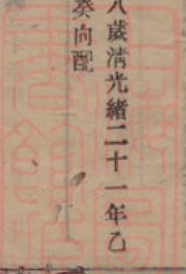 八歲清光緒二十一年乙
葵向配